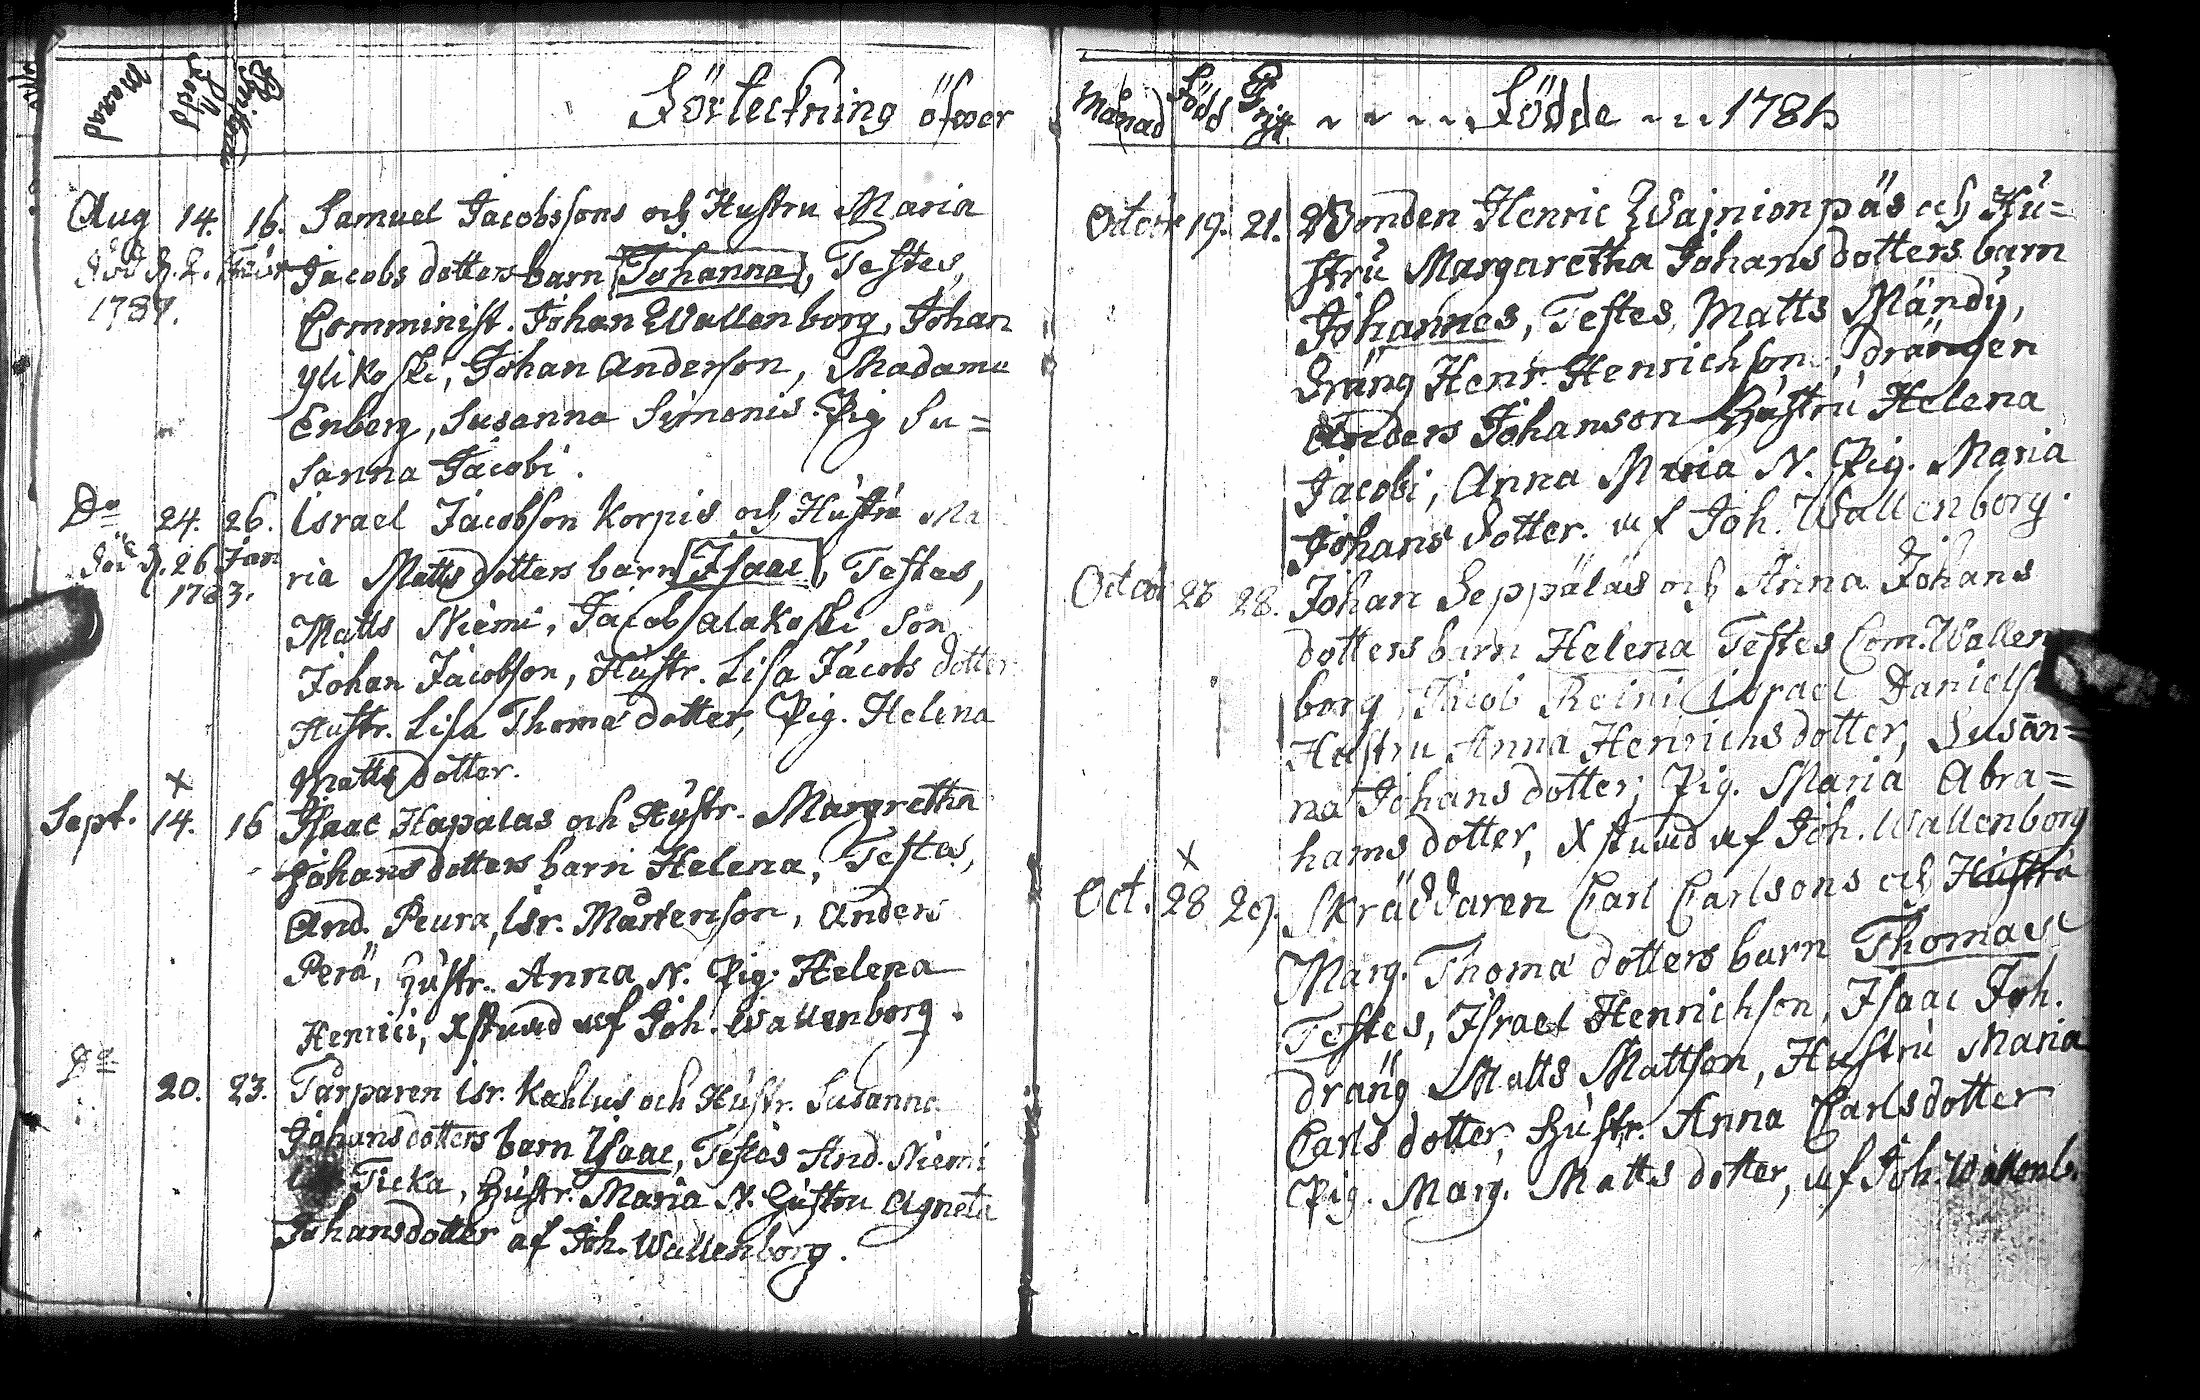 Månad Född Christen
Förteckning öfwer
Aug 14. 16. Samuel Jacobssons och Hustru Maria
död d. 2. Febr Jacobs dotters barn Johanna, Testes,
1787. Comminist. Johan Wallenborg, Johan
ylikoski, Johan Anderson, Madame
Enberg, Susanna Simonis. Pig Su=
sanna Jacobi.
Do 24. 26. Israel Jacobson Korpis och Hustru Ma
död d. 26 Jan ria Matts dotters barn Isaac, Testes,
1783. Matts Niemi, Jacob alakoski, Son
Johan Jacobson, Hustr. Lisa Jacobs dotter
Hustr. Lisa Thomæ dotter, Pig. Helena
Matts dotter.
x
Sept. 14. 16 Isaac Hapalas och Hustr. Margretha
Johans dotters barn Helena, Testes,
And. Peura, Isr. Mårtenson, Anders
Perä, Hustr. Anna N. Pig. Helena
Henrici, Xstnad af Joh. Wallenborg.
Do 20. 23. Tårparen Isr. Kahlus och Hustr. Susanna
Johansdotters barn Isaac, Testes And. Niemi
Ticka, Hustr. Maria N. Hustru Agneta
Johansdotter af Joh. Wallenborg.
Månad Född Christ Födde 178
Octobr 19. 21. Bonden Henric Wajnionpäs och Hu=
stru Margaretha Johans dotters barn
Johannes, Testes, Matts Mändy,
Dräng Henr. Henrichson, drängen
Anders Johanson Hustru Helena
Jacobi, Anna Maria N. Pig. Maria
Johans dotter. af Joh. Wallenborg.
Octobr 28. Johan Seppäläs och Anna Johans
dotters barn Helena Testes Com. Wallen
borg, Jacob Reini Israel Daniels
Hustru Anna Henrichs dotter, Susan=
na Johans dotter; Pig. Maria Abra=
hams dotter, Xstnad af Joh. Wallenborg
x
Oct. 28 29. Skräddaren Carl Carlsons och Hustru
Marg. Thomæ dotters barn Thomas
Testes, Israel Henrichson, Isaac Joh.
dräng Matts Mattson, Hustru Maria
Carls dotter, Hustr. Anna Carlsdotter
Pig. Marg. Matts dotter, af Joh. Wallenb.